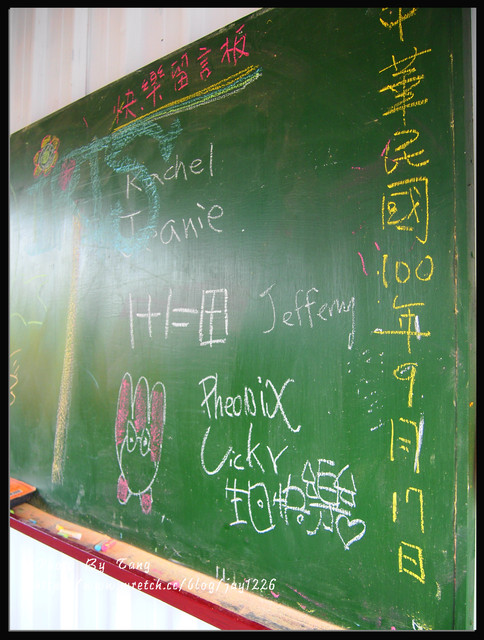 快樂留言板
Rachel
Janie.
1+1=田
Jefferny
PheoniX
Vicky
生日快樂
中華民國100年9月17日
By Tang
wretch.cc/blog/jay1226